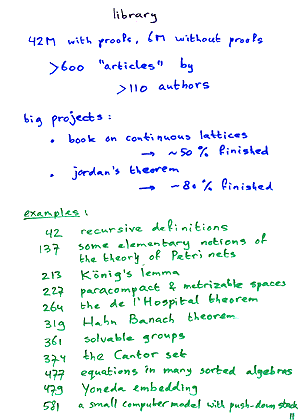 library
42M with proofs, 6M without proofs
>600 "articles" by
>110 authors
big projects:
• book on continuous lattices
→ ~50% finished
• jordan's theorem
→ ~80% finished
examples:
42 recursive definitions
137 some elementary notions of
the theory of Petri nets
213 König's lemma
227 paracompact & metrizable spaces
264 the de l'Hospital theorem
319 Hahn Banach theorem
361 solvable groups
374 the Cantor set
477 equations in many sorted algebras
479 Yoneda embedding
581 a small computer model with push-down stack
11